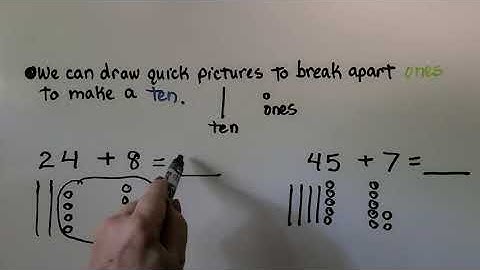 We can draw quick pictures to break apart ones
to make a ten.
ten
ones
24 + 8 =
45 + 7 =